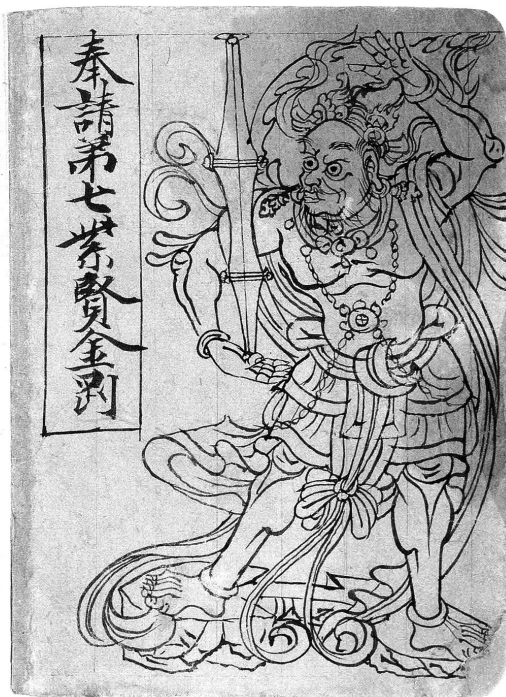 奉請弟七紫賢金剛